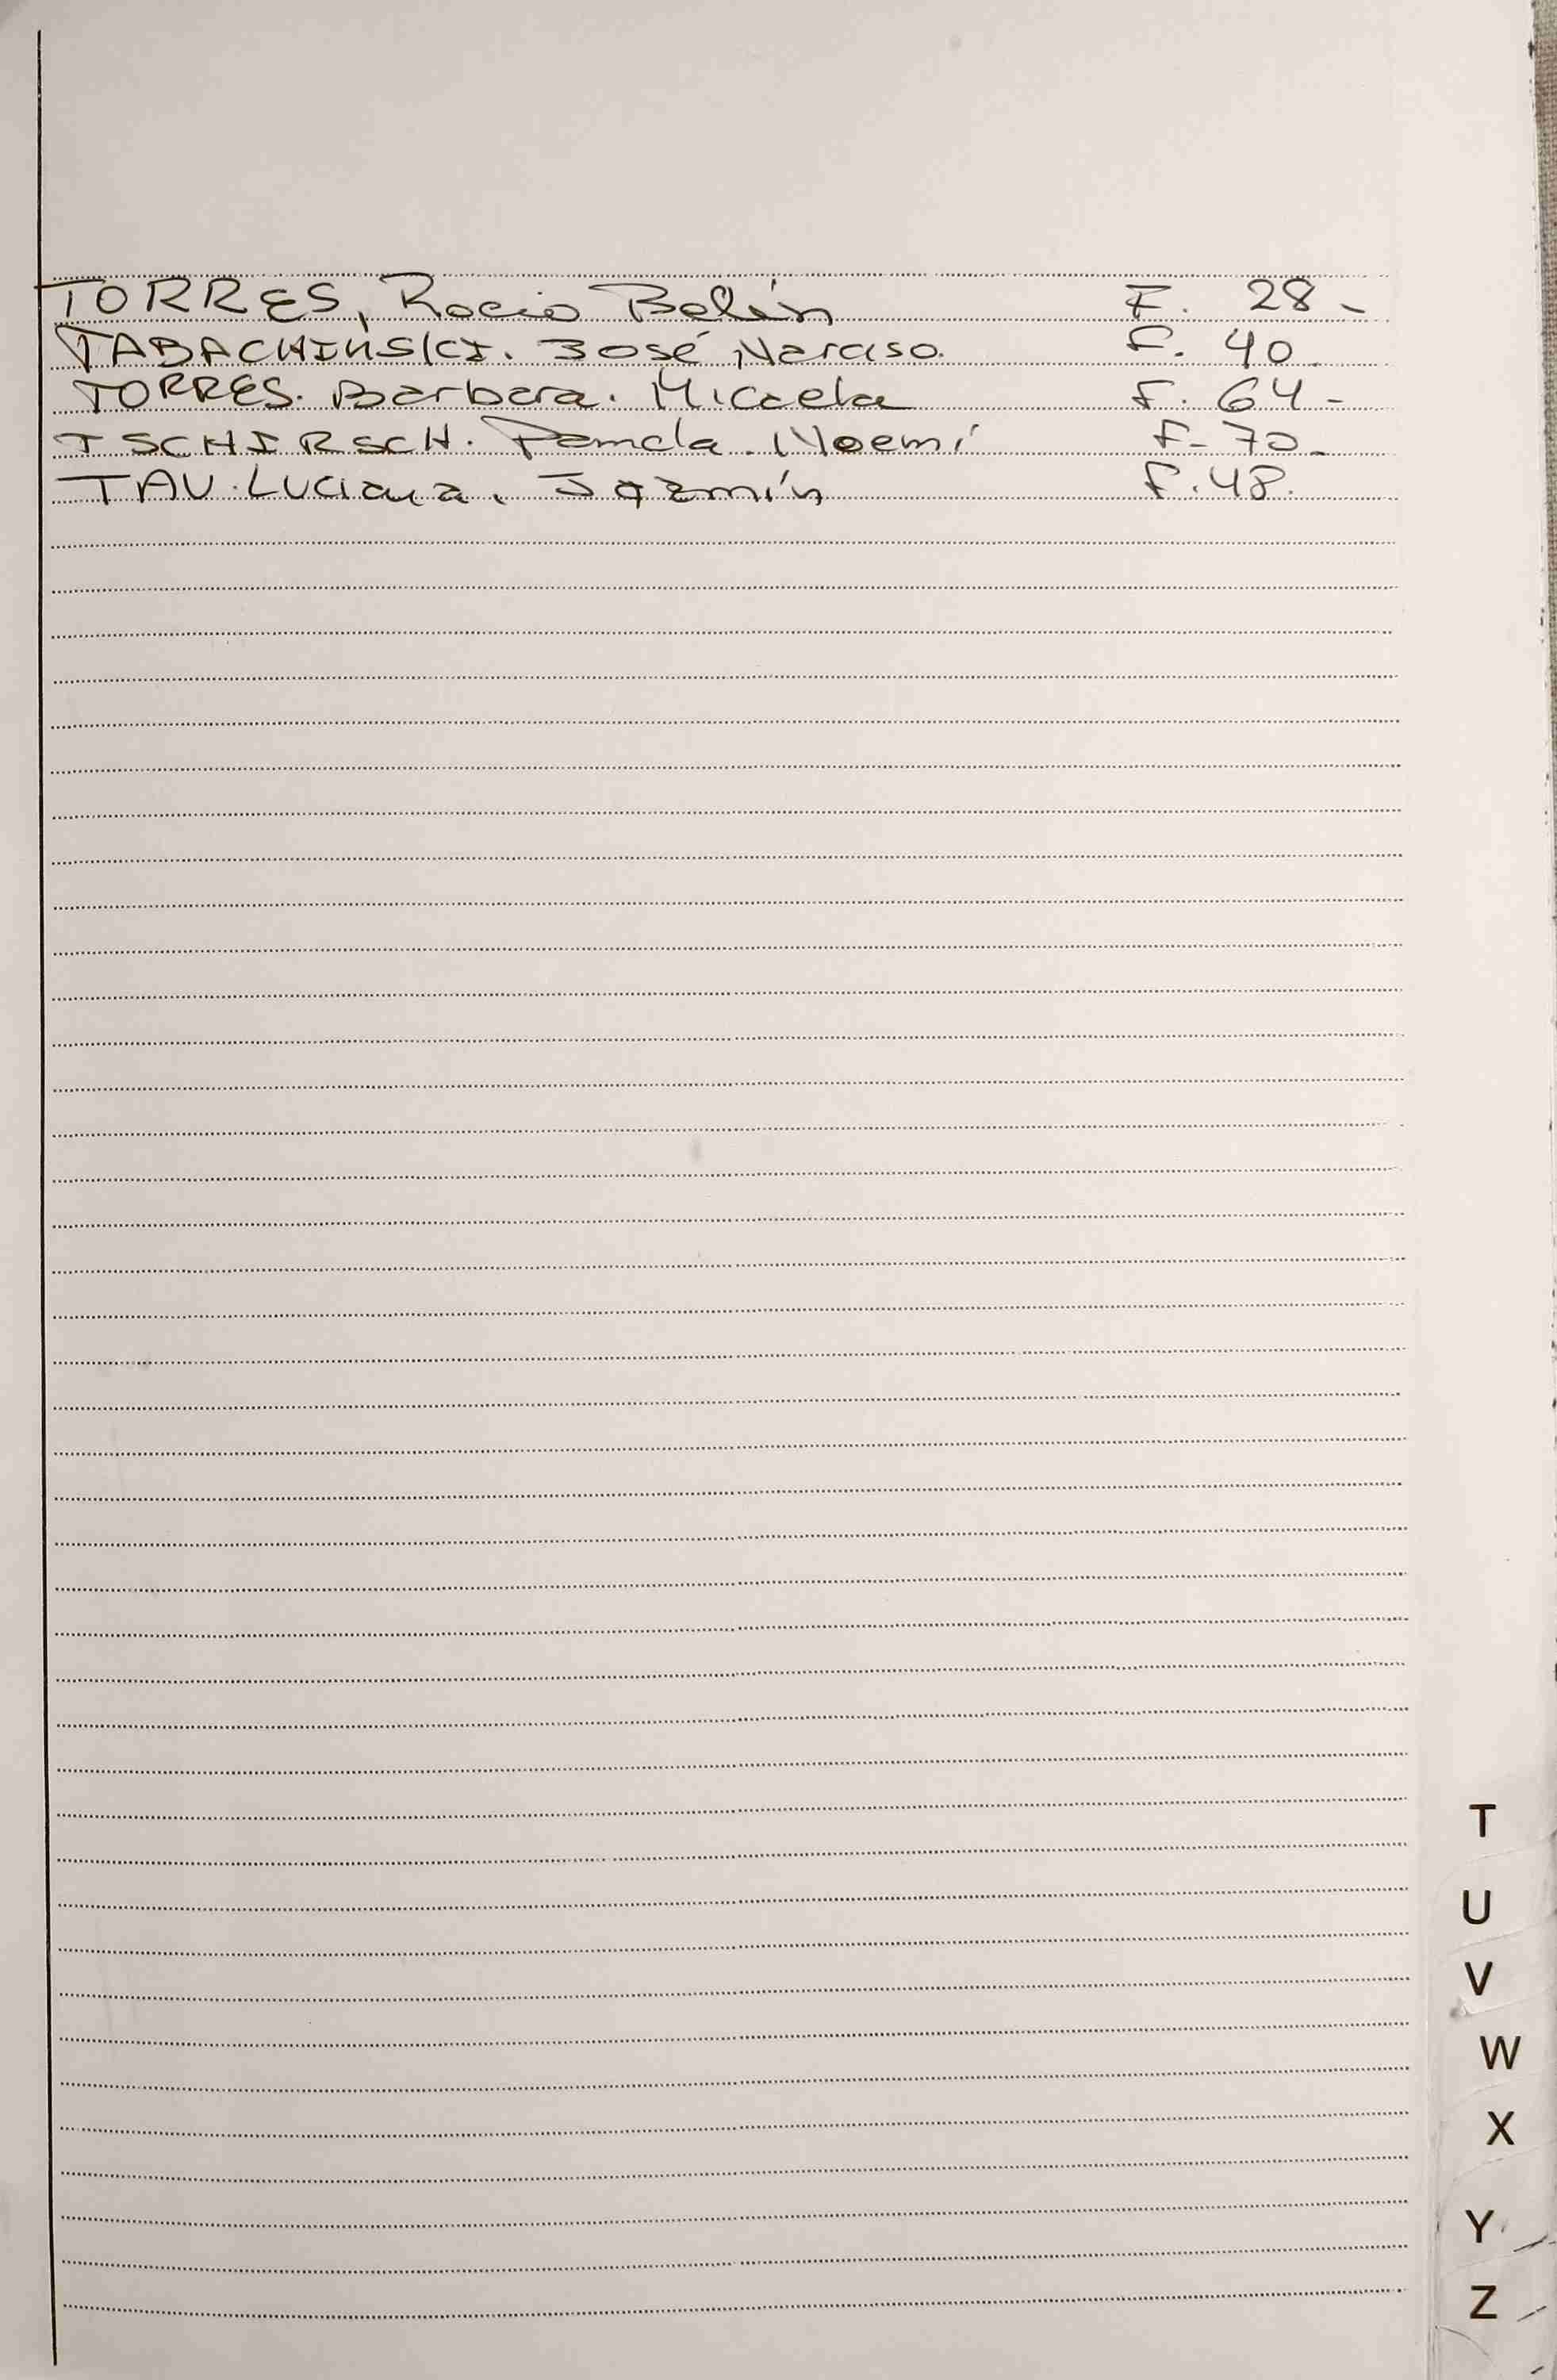 TORRES, Rocio Belén F. 28-
TABACHINSKI. José Narciso. F. 40.
TORRES. Barbara. Micaela F. 64-
TSCHIRSCH. Pamela. Noemí F- 70.
TAV. Luciana. Jazmín F. 48.
T
U
V
W
X
Y
Z